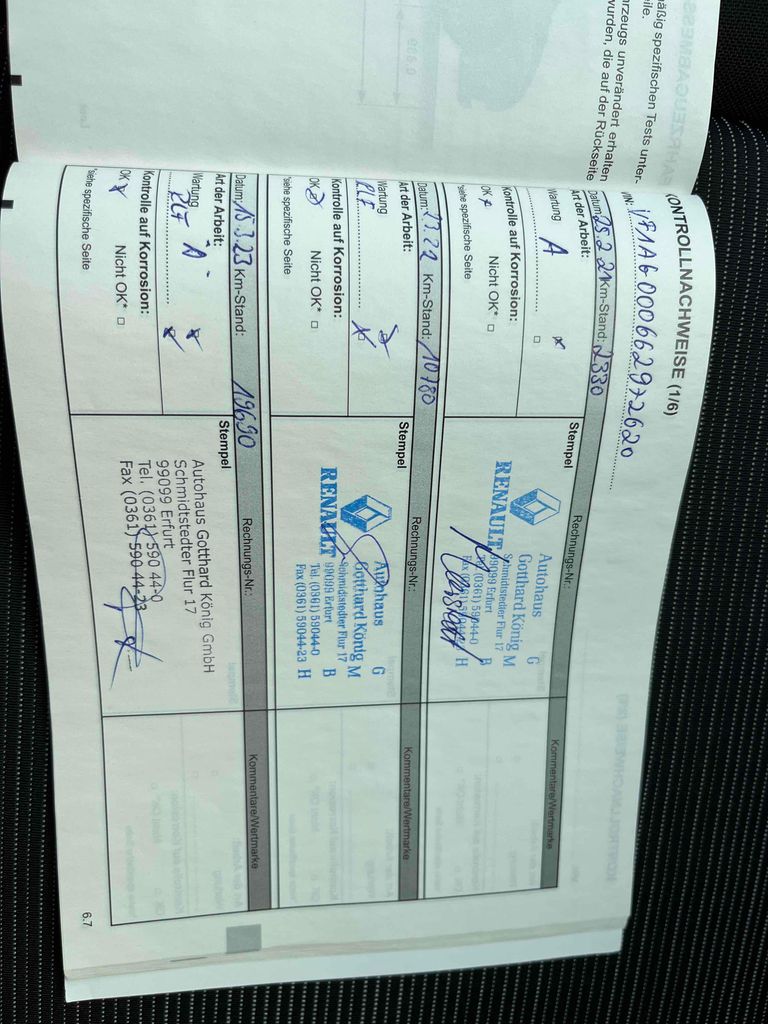 mäßig spezifischen Tests unter-
eile.
hrzeugs unverändert erhalten
wurden, die auf der Rückseite
KONTROLLNACHWEISE (1/6)
VIN: VF1AG000662972620
Datum: 25.2.21 Km-Stand: 2330 Rechnungs-Nr.: Kommentare/Wertmarke
Art der Arbeit: Stempel
Wartung
A
Kontrolle auf Korrosion:
OK Nicht OK* □
*siehe spezifische Seite
RENAULT
Autohaus G
Gotthard König M
Schmidtstedter Flur 17
99099 Erfurt B
Tel. (0361) 59044-0
Fax (0361) 59044-23 H
Datum: Km-Stand: 10780 Rechnungs-Nr.: Kommentare/Wertmarke
Art der Arbeit: Stempel
Wartung
PLF
Kontrolle auf Korrosion:
OK Nicht OK* □
*siehe spezifische Seite
RENAULT
Autohaus G
Gotthard König M
Schmidtstedter Flur 17
99099 Erfurt B
Tel. (0361) 59044-0
Fax (0361) 59044-23 H
Datum: 15.3.23 Km-Stand: 19690 Rechnungs-Nr.: Kommentare/Wertmarke
Art der Arbeit: Stempel
Wartung A
PLF
Kontrolle auf Korrosion:
OK Nicht OK* □
*siehe spezifische Seite
Autohaus Gotthard König GmbH
Schmidtstedter Flur 17
99099 Erfurt
Tel. (0361) 590 44-0
Fax (0361) 590 44-23
6.7